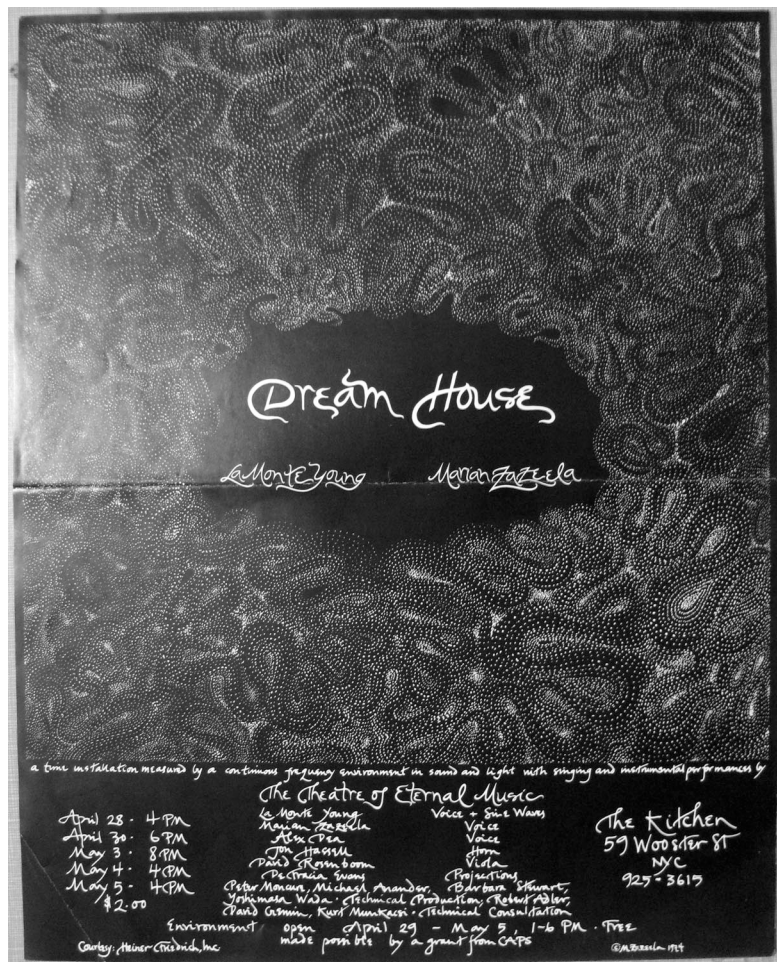 Dream House
La Monte Young Marian Zazeela
a time installation measured by a continuous frequency environment in sound and light with singing and instrumental performances by
The Theatre of Eternal Music
April 28 - 4 PM
April 30 - 6 PM
May 3 - 8 PM
May 4 - 4 PM
May 5 - 4 PM
$2.00
La Monte Young Voice + Sine Waves
Marian Zazeela Voice
Alex Dea Voice
Jon Hassell Horn
David Rosenboom Viola
DeTracia Evans Projections
Peter Moncur, Michael Anander, Barbara Stewart,
Yoshimasa Wada - Technical Production, Robert Adler,
David Gemin, Kurt Munkacsi - Technical Consultation
The Kitchen
59 Wooster St
NYC
925-3615
Environment open April 29 - May 5, 1-6 PM - Free
made possible by a grant from CAPS
Courtesy: Heiner Friedrich, Inc.
© M. Zazeela 1974